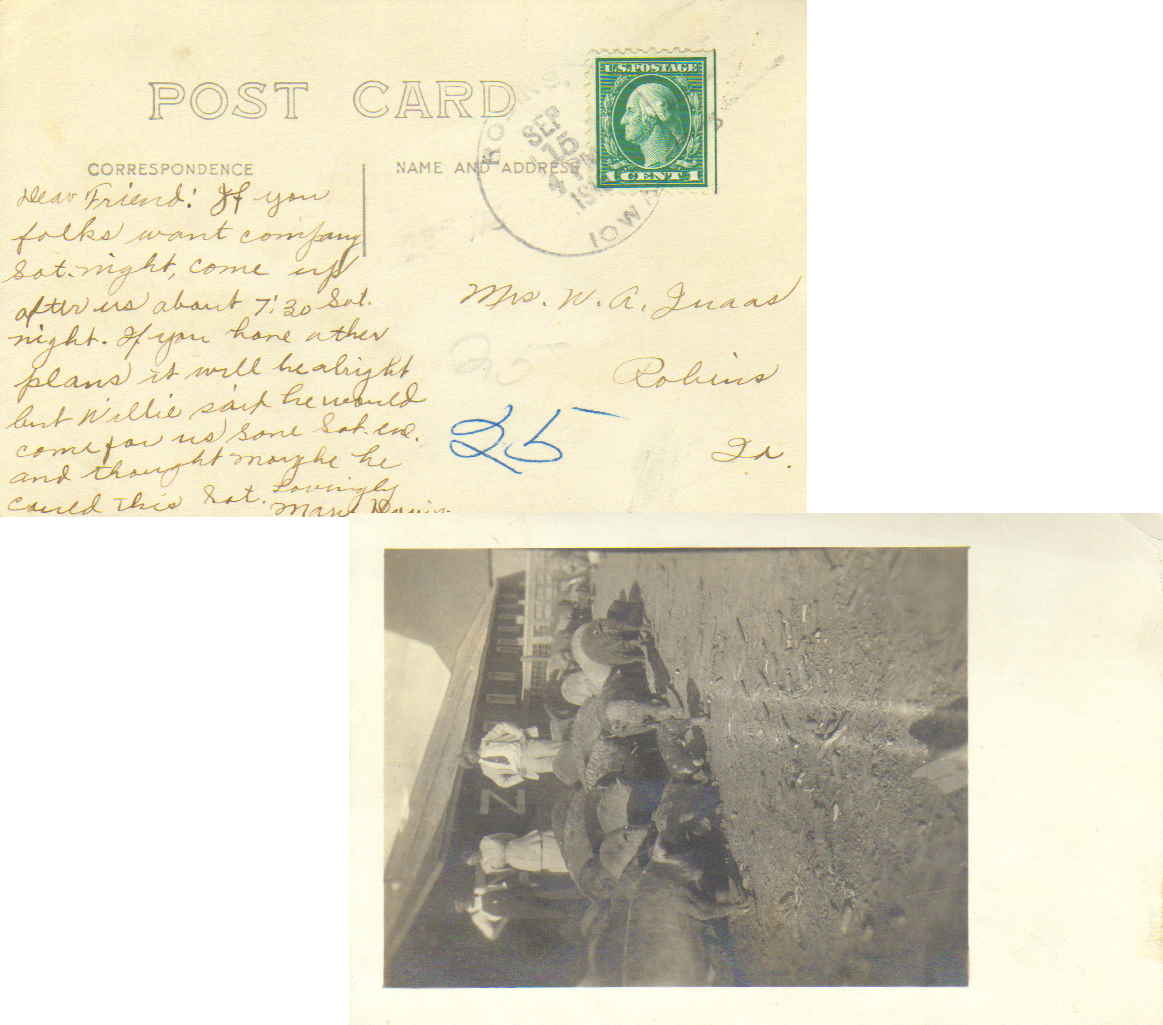 POST CARD
U.S. POSTAGE
1 CENT 1
SEP
15
PM
IOWA
CORRESPONDENCE
NAME AND ADDRESS
Dear Friend! If you
folks want company
Sat. night, come up
after us about 7:30 Sat.
night. If you have other
plans it will be alright
but Willie said he would
come for us some Sat. eve.
and thought maybe he
could this Sat. Lovingly
Mrs. W. A.
Robins
Ia.
25
Z